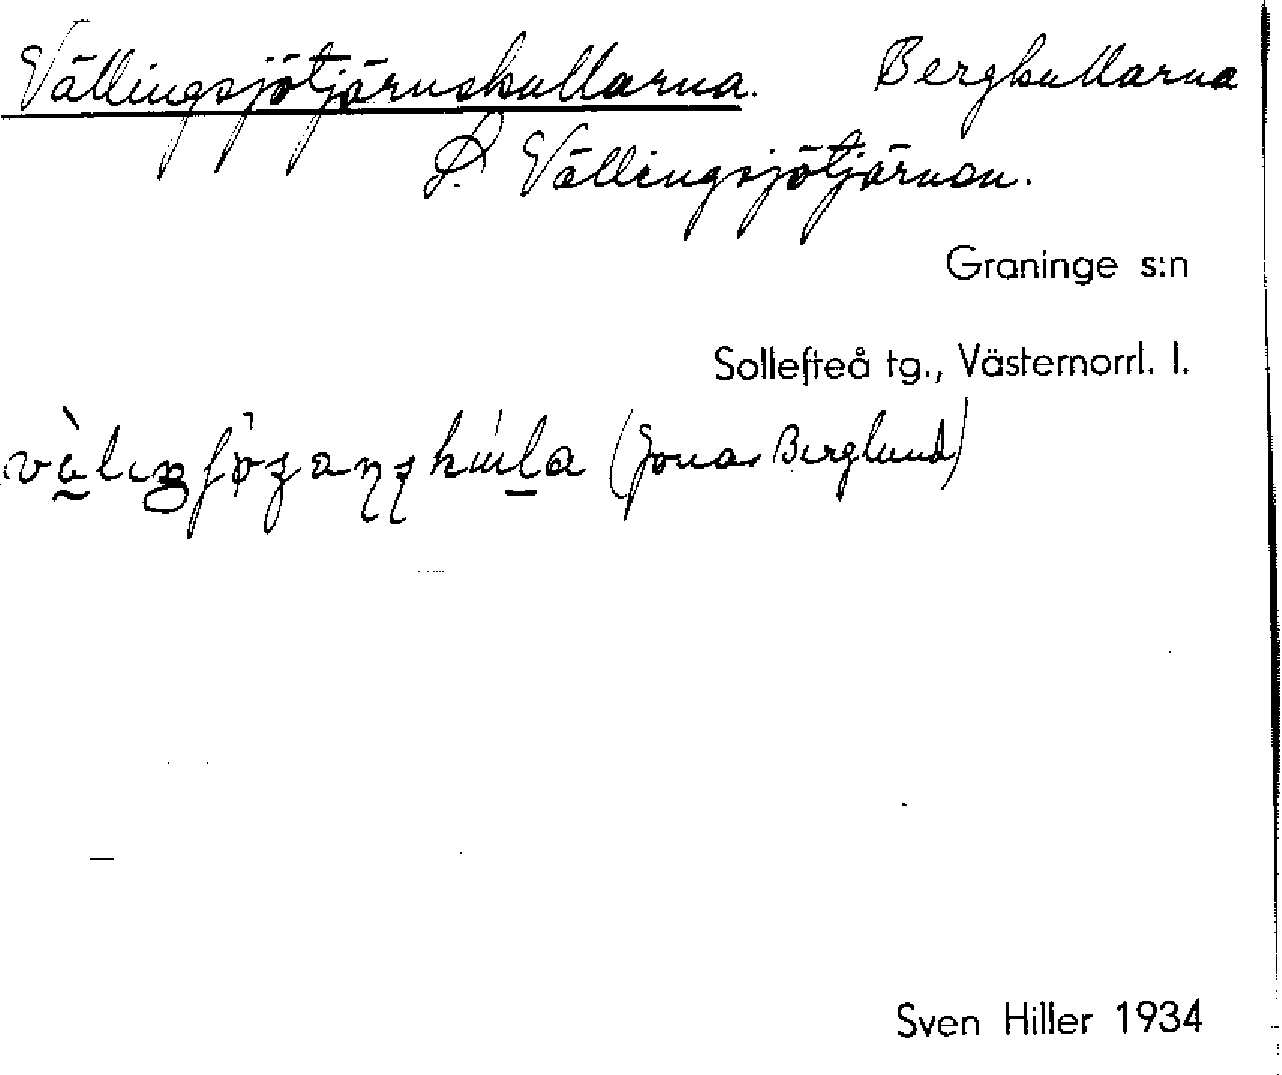 Vällingsjötjärnskullarna. Bergkullarna
S. Vällingsjötjärnen.
Graninge s:n
Sollefteå tg., Västernorrl. l.
(Jonas Berglund)
Sven Hiller 1934